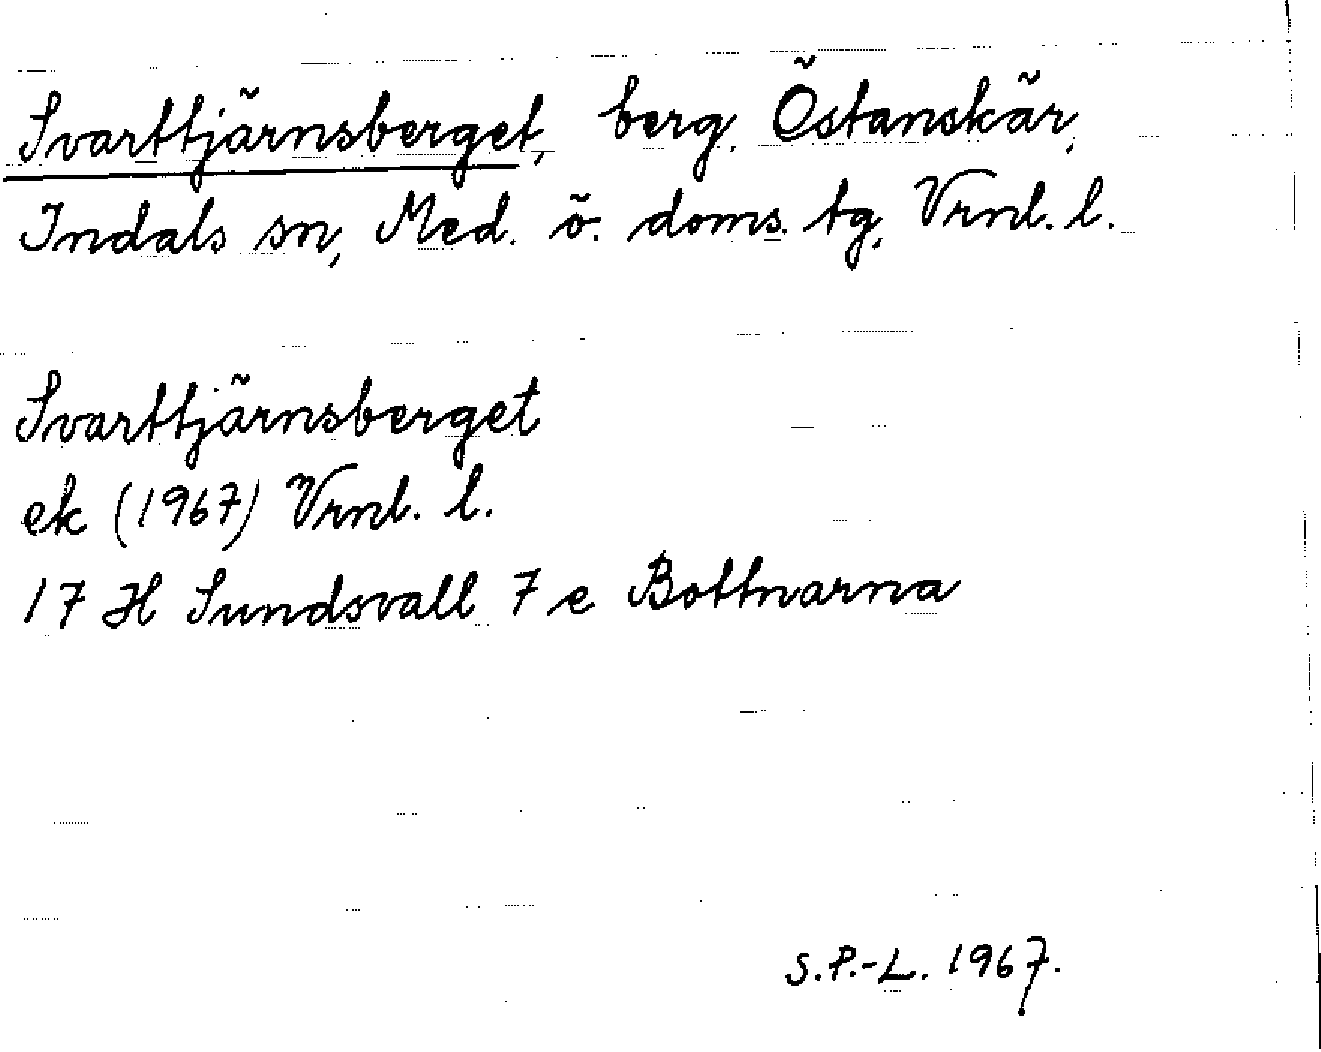 Svarttjärnsberget, berg. Östanskär,
Indals sn, Med. ö. doms. tg, Vrnl. l.
Svarttjärnsberget
ek (1967) Vrnl. l.
17 H Sundsvall 7 e Bottnarna
S.P.-L. 1967.